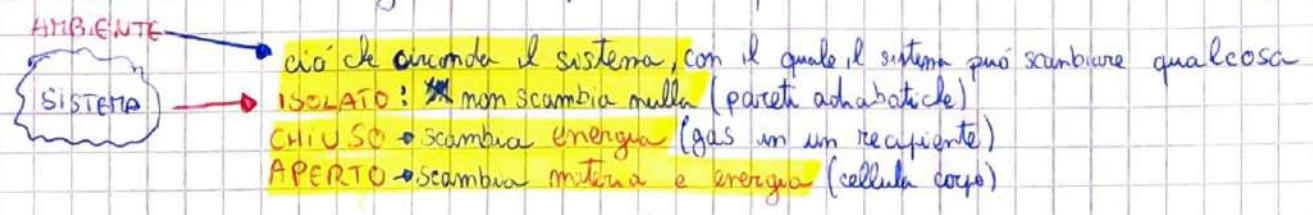 AMBIENTE
ció che circonda il sistema, con il quale il sistema puó scambiare qualcosa
SISTEMA
ISOLATO: non scambia nulla (pareti adiabatiche)
CHIUSO scambia energia (gas in un recipiente)
APERTO scambia materia e energia (cellula corpo)